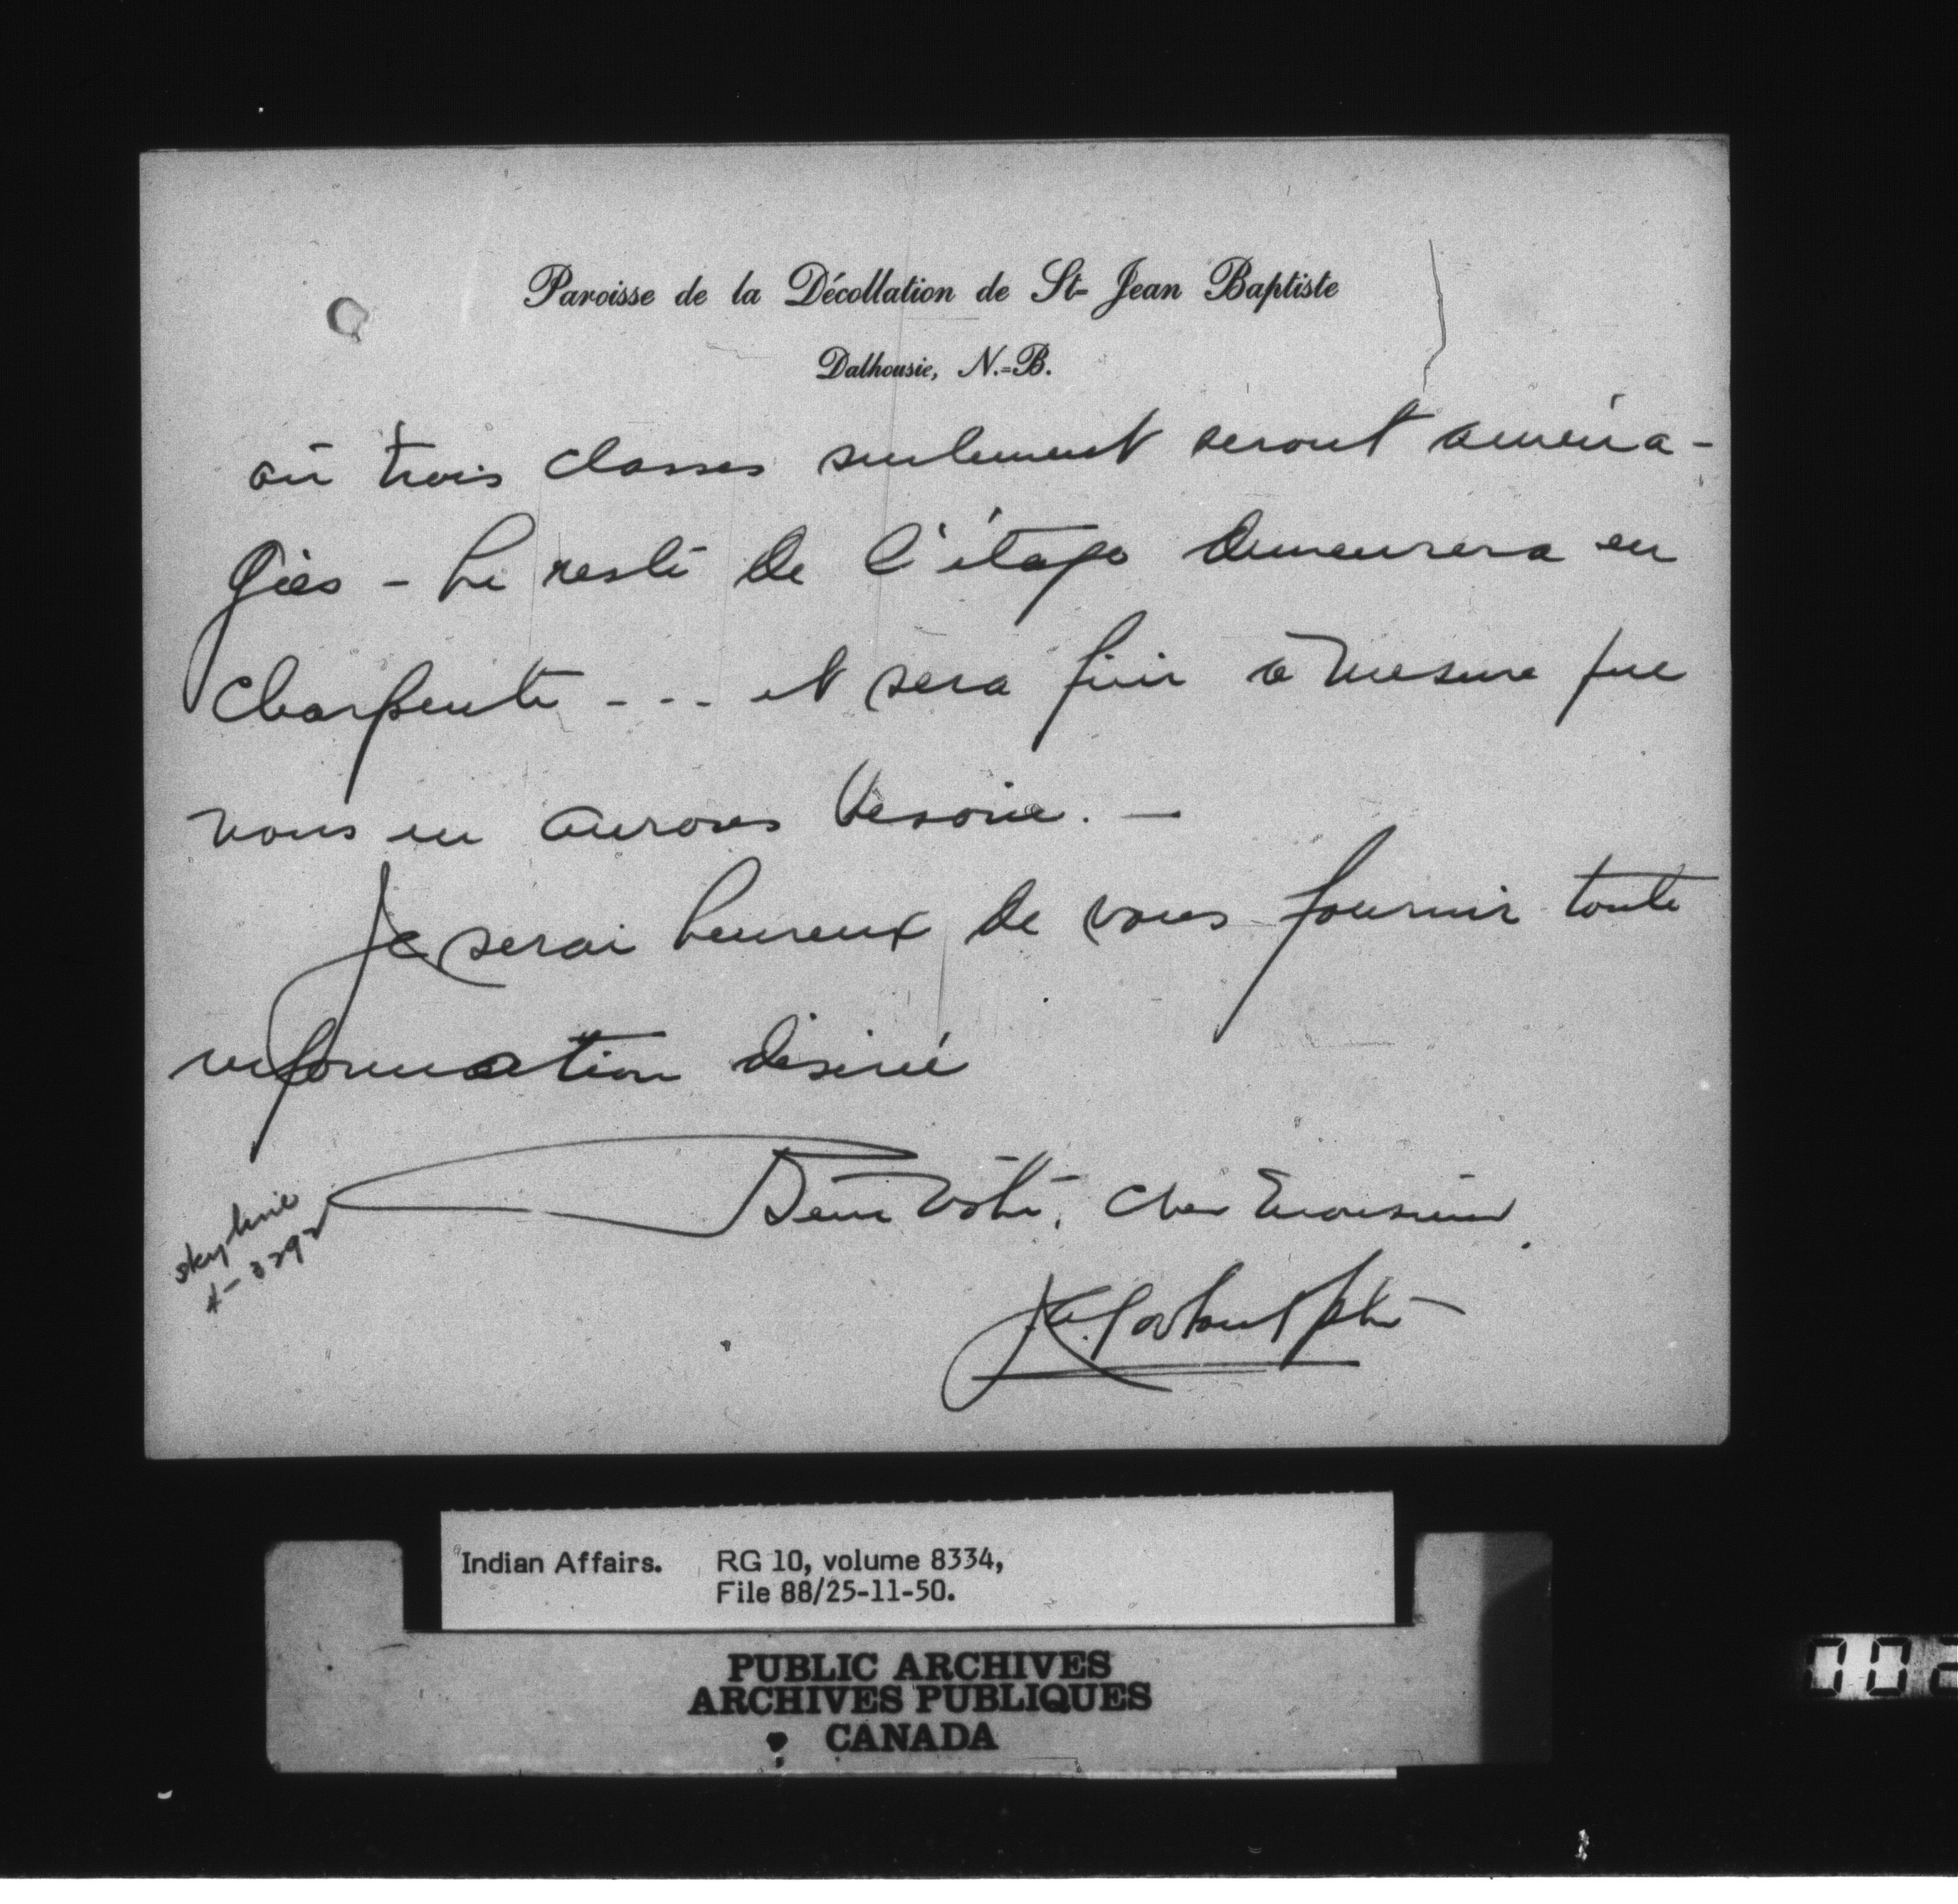 Paroisse de la Décollation de St- Jean Baptiste
Dalhousie, N.-B.
où trois classes seulement seront aména-
gées - Le reste de l'étage demeurera en
charpente - - - et sera finir à mesure que
nous en aurons besoin. —
Je serai heureux de vous fournir toute
information désiré
Bien Vôtre, Cher Monsieur.
skyline
4-3292
ptre
Indian Affairs. RG 10, volume 8334,
File 88/25-11-50.
PUBLIC ARCHIVES
ARCHIVES PUBLIQUES
CANADA
002